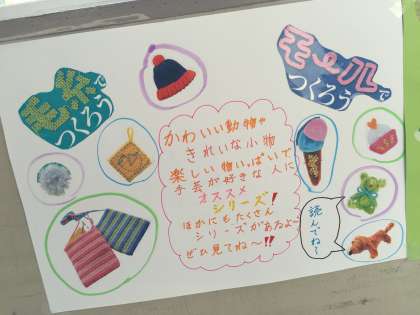 毛糸で
つくろう
モールで
つくろう
かわいい動物や
きれいな小物
楽しい物いっぱいで
手芸が好きな人に
オススメ
シリーズ!
ほかにもたくさん
シリーズがあるよ〜
ぜひ見てね〜!!
読んでね〜